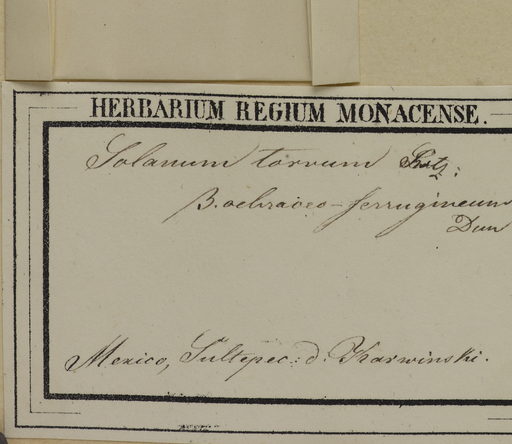 HERBARIUM REGIUM MONACENSE.
Solanum torvum Swtz:
B. ochraceo-ferrugineum
Dun
Mexico, Sultepec: d: Karwinski.